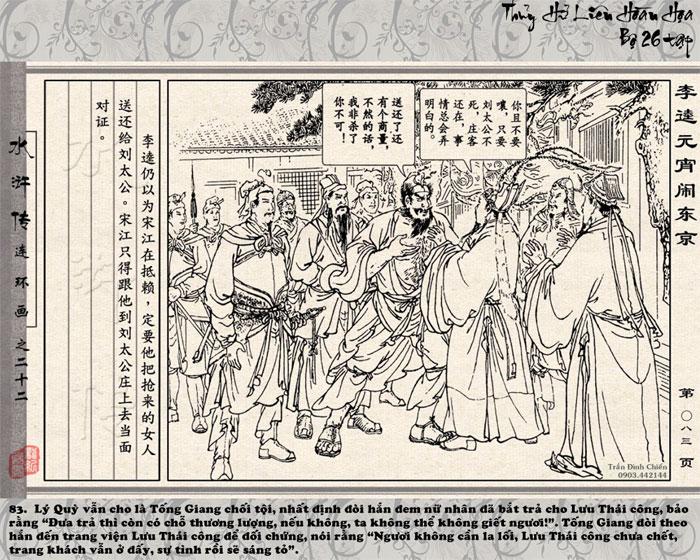 Thủy Hử Liên Hoàn Họa
Bộ 26 tập
李逵元宵闹东京
第〇八三页
你且不要
嚷，只要
刘太公不
死，庄客
还在，事
情总会弄
明白的。
送还了还
有个商量，
不然的话，
我非杀了
你不可！
李逵仍以为宋江在抵赖，定要他把抢来的女人
送还给刘太公。宋江只得跟他到刘太公庄上去当面
对证。
水浒传连环画之二十二
Trần Đình Chiến
0903.442144
83. Lý Quỳ vẫn cho là Tống Giang chối tội, nhất định đòi hắn đem nữ nhân đã bắt trả cho Lưu Thái công, bảo
rằng “Đưa trả thì còn có chỗ thương lượng, nếu không, ta không thể không giết ngươi!”. Tống Giang đòi theo
hắn đến trang viện Lưu Thái công để đối chứng, nói rằng “Ngươi không cần la lối, Lưu Thái công chưa chết,
trang khách vẫn ở đấy, sự tình rồi sẽ sáng tỏ”.